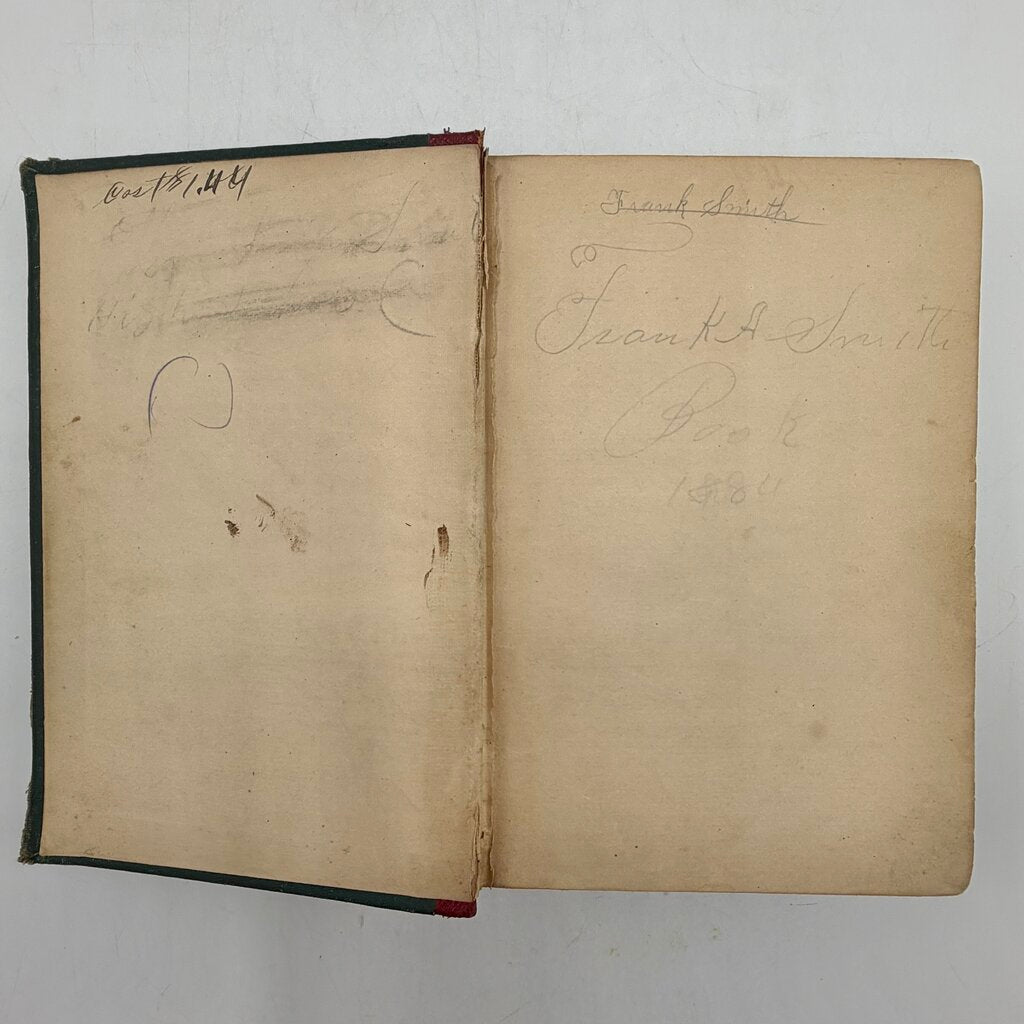 Cost $1.44
Frank Smith
Frank A Smith
Book
1884